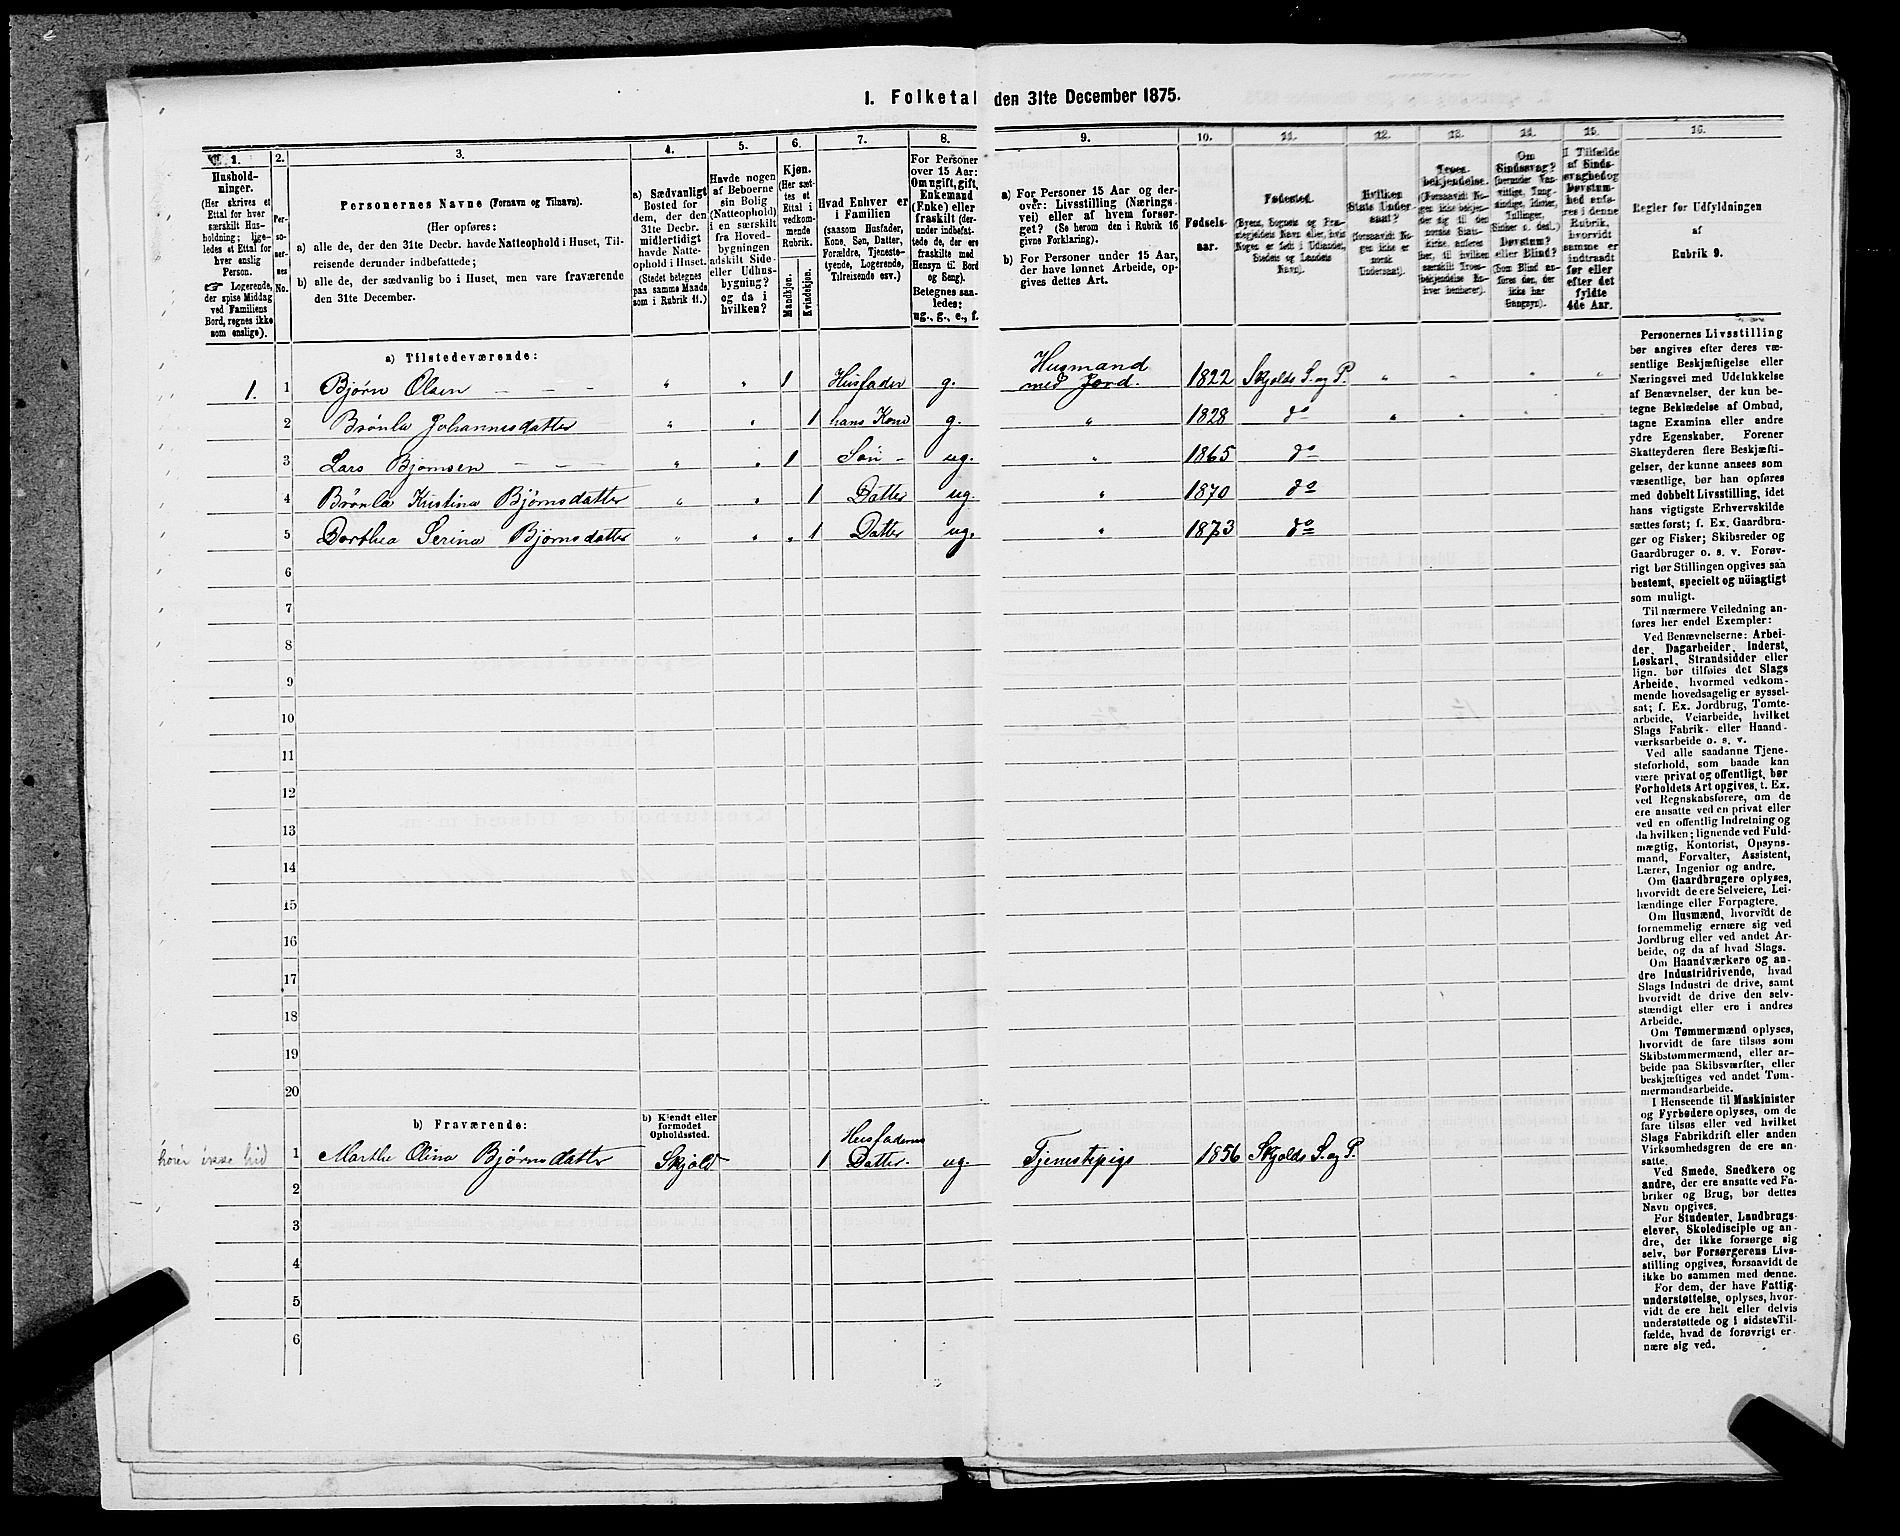 I. Folketal den 31te December 1875.
1.
Husholdninger.
(Her skrives et
Ettal for hver
særskilt Husholdning; ligeledes et Ettal for
hver enslig
Person.
☞ Logerende,
der spise Middag
ved Familiens
Bord, regnes ikke
som enslige).
2.
Personernes
No.
3.
Personernes Navne (Fornavn og Tilnavn).
(Her opføres:
a) alle de, der den 31te Decbr. havde Natteophold i Huset, Tilreisende derunder indbefattede;
b) alle de, der sædvanlig bo i Huset, men vare fraværende
den 31te December.
4.
a) Sædvanligt
Bosted for
dem, der den
31te Decbr.
midlertidigt
havde Natteophold i Huset.
(Stedet betegnes
paa samme Maade
som i Rubrik 11.)
5.
Havde nogen
af Beboerne
sin Bolig
(Natteophold)
i en særskilt
fra Hovedbygningen
adskilt Side-
eller Udhusbygning?
og da i
hvilken?
6.
Kjøn.
(Her sættes et
Ettal i
vedkommende
Rubrik.
Mandkjøn.
Kvindekjøn.
7.
Hvad Enhver er
i Familien
(saasom Husfader,
Kone, Søn, Datter,
Forældre, Tjenestetyende, Logerende,
Tilreisende osv.)
8.
For Personer
over 15 Aar:
Om ugift, gift,
Enkemand
(Enke) eller
fraskilt (derunder indbefattede de, der ere
fraskilte med
Hensyn til Bord
og Seng).
Betegnes saaledes:
ug., g., e., f.
9.
a) For Personer 15 Aar og derover: Livsstilling (Næringsvei) eller af hvem forsørget? (Se herom den i Rubrik 16
givne Forklaring).
b) For Personer under 15 Aar,
der have lønnet Arbeide, opgives dettes Art.
10.
Fødselsaar.
11.
Fødested.
(Byens, Sognets og Præstegjeldets Navn eller, hvis
Nogen er født i Udlandet,
Stedets og Landets
Navn).
12.
Hvilken
Stats Undersaat?
(forsaavidt Nogen ikke er
norsk
Undersaat).
13.
Troesbekjendelse.
14.
Om
Sindssvag?
Døvstum?
eller Blind?
15.
I Tilfælde
af Sindssvaghed og
Døvstumhed anføres i denne
Rubrik,
hvorvidt
samme er
indtraadt
før eller
efter det
fyldte
4de Aar.
16.
Regler for Udfyldningen
af
Rubrik 9.
a) Tilstedeværende:
1. 1 Bjørn Olsen " " 1 Husfader g. Husmand med Jord. 1822 Skjolds S. og P. " " " "
2 Brønla Johannesdatter " " 1 hans Kone g. " 1828 do " " "
3 Lars Bjørnsen " " 1 Søn ug. " 1865 do
4 Brønla Kristina Bjørnsdatter " " 1 Datter ug. " 1870 do
5 Dorthea Serina Bjørnsdatter " " " 1 Datter ug. " 1873 do
6
7
8
9
10
11
12
13
14
15
16
17
18
19
20
b) Fraværende:
b) Kjendt eller
formodet
Opholdssted.
hører ikke hid 1 Marthe Olina Bjørnsdatter Skjold 1 Husfaderens Datter. ug. Tjenestepige 1856 Skjolds S. og P.
2
3
4
5
6
Personernes Livsstilling
bør angives efter deres væsentlige Beskjæftigelse eller
Næringsvei med Udelukkelse
af Benævnelser, der kun betegne Beklædelse af Ombud,
tagne Examina eller andre
ydre Egenskaber. Forener
Skatteyderen flere Beskjæftigelser, der kunne ansees som
væsentlige, bør han opføres
med dobbelt Livsstilling, idet
hans vigtigste Erhvervskilde
sættes først; f. Ex. Gaardbruger og Fisker; Skibsreder og
Gaardbruger o. s. v. Forøvrigt bør Stillingen opgives saa
bestemt, specielt og nöiagtigt
som muligt.
Til nærmere Veiledning anføres her endel Exempler:
Ved Benævnelserne: Arbeider, Dagarbeider, Inderst,
Løskarl, Strandsidder eller
lign. bør tilføies det Slags
Arbeide, hvormed vedkommende hovedsagelig er sysselsat; f. Ex. Jordbrug, Tomtearbeide, Veiarbeide, hvilket
Slags Fabrik- eller Haandværksarbeide o. s. v.
Ved alle saadanne Tjenesteforhold, som baade kan
være privat og offentligt, bør
Forholdets Art opgives, t. Ex.
ved Regnskabsførere, om de
ere ansatte ved en privat eller
ved en offentlig Indretning og
da hvilken; lignende ved Fuldmægtig, Kontorist, Opsynsmand, Forvalter, Assistent,
Lærer, Ingeniør og andre.
Om Gaardbrugere oplyses,
hvorvidt de ere Selveiere, Leilændinge eller Forpagtere.
Om Husmænd, hvorvidt de
fornemmelig ernære sig ved
Jordbrug eller ved andet Arbeide, og da af hvad Slags.
Om Haandværkere og andre Industridrivende, hvad
Slags Industri de drive, samt
hvorvidt de drive den selvstændigt eller ere i andres
Arbeide.
Om Tømmermænd oplyses,
hvorvidt de fare tilsøs som
Skibstømmermænd, eller arbeide paa Skibsværfter, eller
beskjæftiges ved andet Tømmermandsarbeide.
I Henseende til Maskinister
og Fyrbødere oplyses, om de
fare tilsøs eller ved hvilket
Slags Fabrikdrift eller anden
Virksomhedsgren de ere ansatte.
Ved Smede, Snedkere og
andre, der ere ansatte ved Fabriker og Brug, bør dettes
Navn opgives.
For Studenter, Landbrugselever, Skoledisciple og andre, der ikke forsørge sig
selv, bør Forsørgerens Livsstilling opgives, forsaavidt de
ikke bo sammen med denne.
For dem, der have Fattigunderstøttelse, oplyses, hvorvidt de ere helt eller delvis
understøttede og i sidste Tilfælde, hvad de forøvrigt ernære sig ved.